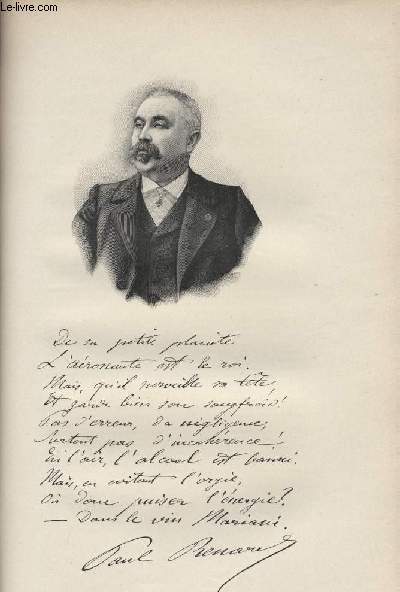 Le-livre.com
De sa petite planète
L'aéronaute est le roi.
Mais, qu'il surveille sa tête,
Et garde bien son sangfroid!
Pas d'erreur, de négligence;
Surtout pas d'incohérence!
En l'air, l'alcool est banni.
Mais, en évitant l'orgie,
Où donc puiser l'énergie?
— Dans le vin Mariani.
Paul Renard